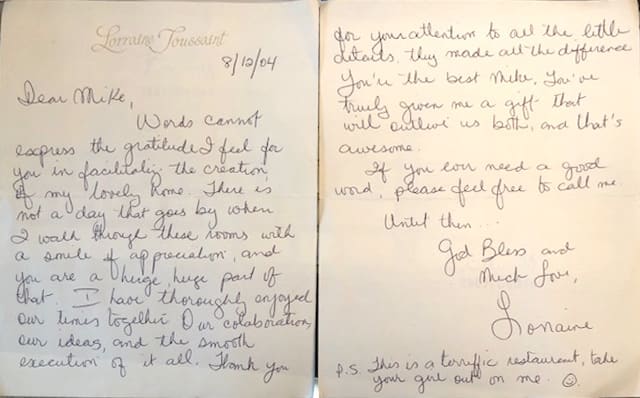 Lorraine Toussaint
8/12/04
Dear Mike,
Words cannot
express the gratitude I feel for
you in facilitating the creation
of my lovely home. There is
not a day that goes by when
I walk through these rooms with
a smile of appreciation, and
you are a huge, huge part of
that. I have thoroughly enjoyed
our times together. Our colaboration,
our ideas, and the smooth
execution of it all. Thank you
for your attention to all the little
details, they made all the difference
You're the best Mike. You've
truely given me a gift that
will outlive us both, and that's
awesome.
If you ever need a good
word, please feel free to call me.
Until then...
God Bless and
Much Love,
Lorraine
P.S. This is a terriffic restaurant, take
your girl out on me. ☺